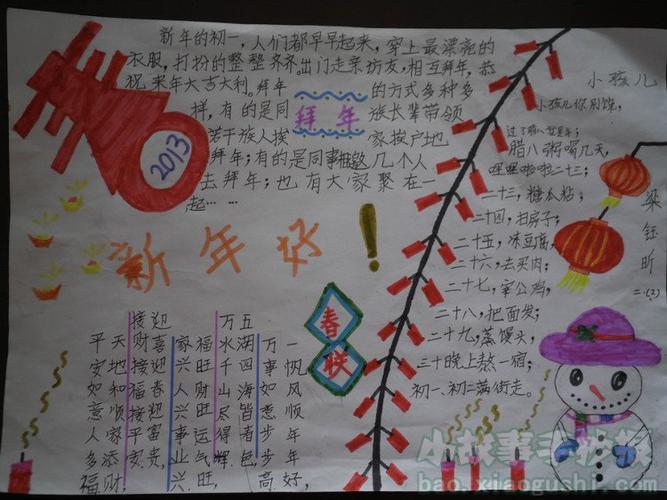 新年的初一，人们都早早起来，穿上最漂亮的
衣服，打扮的整整齐齐。出门走亲访友，相互拜年，恭
祝来年大吉大利。拜年的方式多种多
样，有的是同族长辈带领
若干族人挨家挨户地
拜年；有的是同事相邀几个人
去拜年；也有大家聚在一
起……
拜年
2013
新年好！
春联
一帆风顺年年好，
万事如意步步高
五湖四海皆春色
万水千山尽得辉
福旺财旺运气旺，
家兴人兴事业兴
迎喜春富贵
接财接福接平安
天地和顺家添财
平安如意人多福
小孩儿
小孩儿你别馋，
过了腊八就是年；
腊八粥喝几天，
哩哩啦啦二十三；
二十三，糖瓜粘；
二十四，扫房子；
二十五，冻豆腐；
二十六，去买肉；
二十七，宰公鸡，
二十八，把面发；
二十九，蒸馒头，
三十晚上熬一宿；
初一、初二满街走。
梁钰昕
二.(2)
小故事手抄报
bao.xiaogushi.com